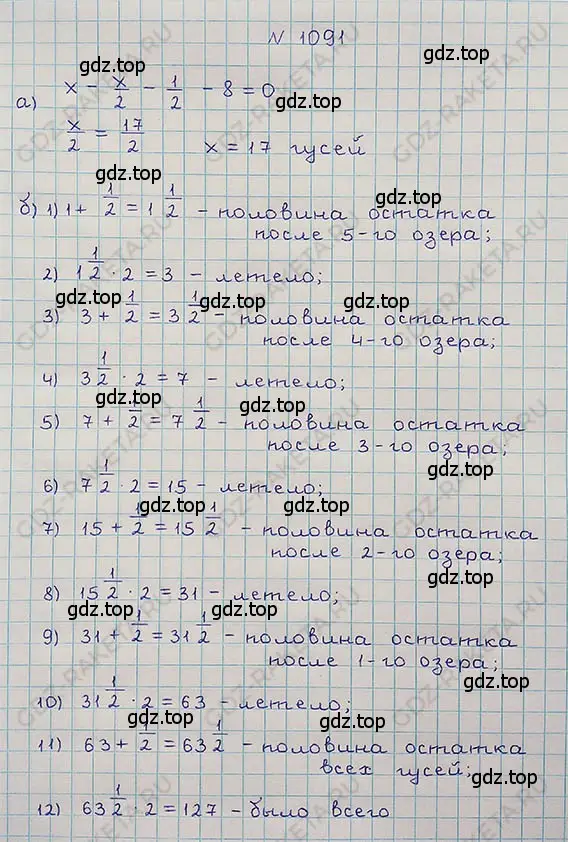 N 1091
gdz.top
а) x - x/2 - 1/2 - 8 = 0
x/2 = 17/2 x = 17 гусей
gdz.top
gdz.top
б) 1) 1 + 1/2 = 1 1/2 - половина остатка
после 5-го озера;
gdz.top
2) 1 1/2 · 2 = 3 - летело;
gdz.top gdz.top gdz.top
3) 3 + 1/2 = 3 1/2 - половина остатка
после 4-го озера;
gdz.top
4) 3 1/2 · 2 = 7 - летело;
gdz.top gdz.top
5) 7 + 1/2 = 7 1/2 - половина остатка
после 3-го озера;
gdz.top
6) 7 1/2 · 2 = 15 - летело;
gdz.top gdz.top
7) 15 + 1/2 = 15 1/2 - половина остатка
после 2-го озера;
gdz.top
8) 15 1/2 · 2 = 31 - летело;
gdz.top gdz.top
9) 31 + 1/2 = 31 1/2 - половина остатка
после 1-го озера;
gdz.top
10) 31 1/2 · 2 = 63 - летело;
gdz.top gdz.top
11) 63 + 1/2 = 63 1/2 - половина остатка
всех гусей;
gdz.top
12) 63 1/2 · 2 = 127 - было всего
GDZ-RAKETA.RU